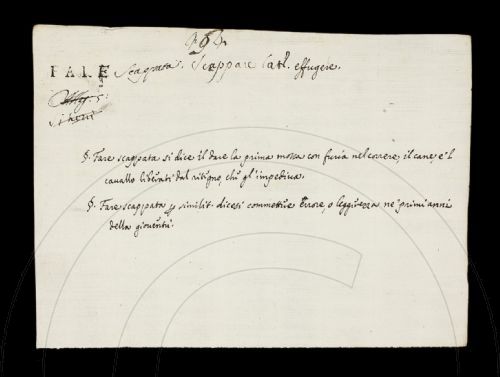 FALE Scappata. Scappare lat. effugere.
§. Fare scappata si dice il dare la prima mossa con furia nel correre, il cane e 'l
cavallo liberati dal ritegno, che gl' impediva.
§. Fare scappata p similit. dicesi commettere errore, o leggerezza ne' primi anni
della gioventù.